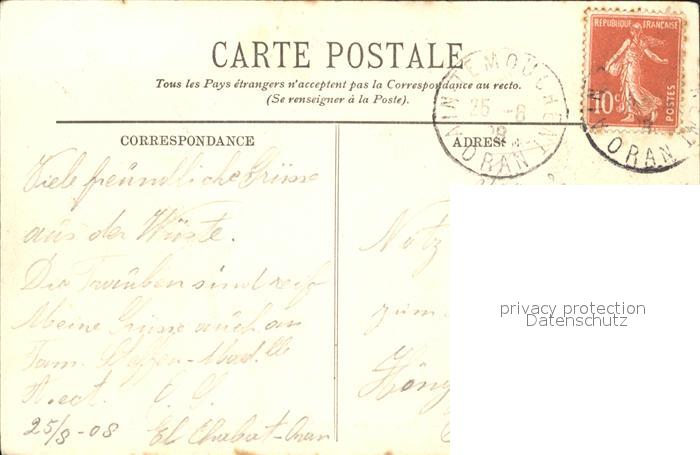 CARTE POSTALE
Tous les Pays étrangers n'acceptent pas la Correspondance au recto.
(Se renseigner à la Poste).
REPUBLIQUE FRANÇAISE
10c
POSTES
AIN-TEMOUCHENT
25 -8
08
ORAN
ORAN
CORRESPONDANCE
ADRESSE
Viele freundliche Grüsse
aus der Wüste.
Die Trauben sind reif
Meine Grüsse auch an
Fam.
25/8-08
El Chabat-Oran
Notz
zum
privacy protection
Datenschutz